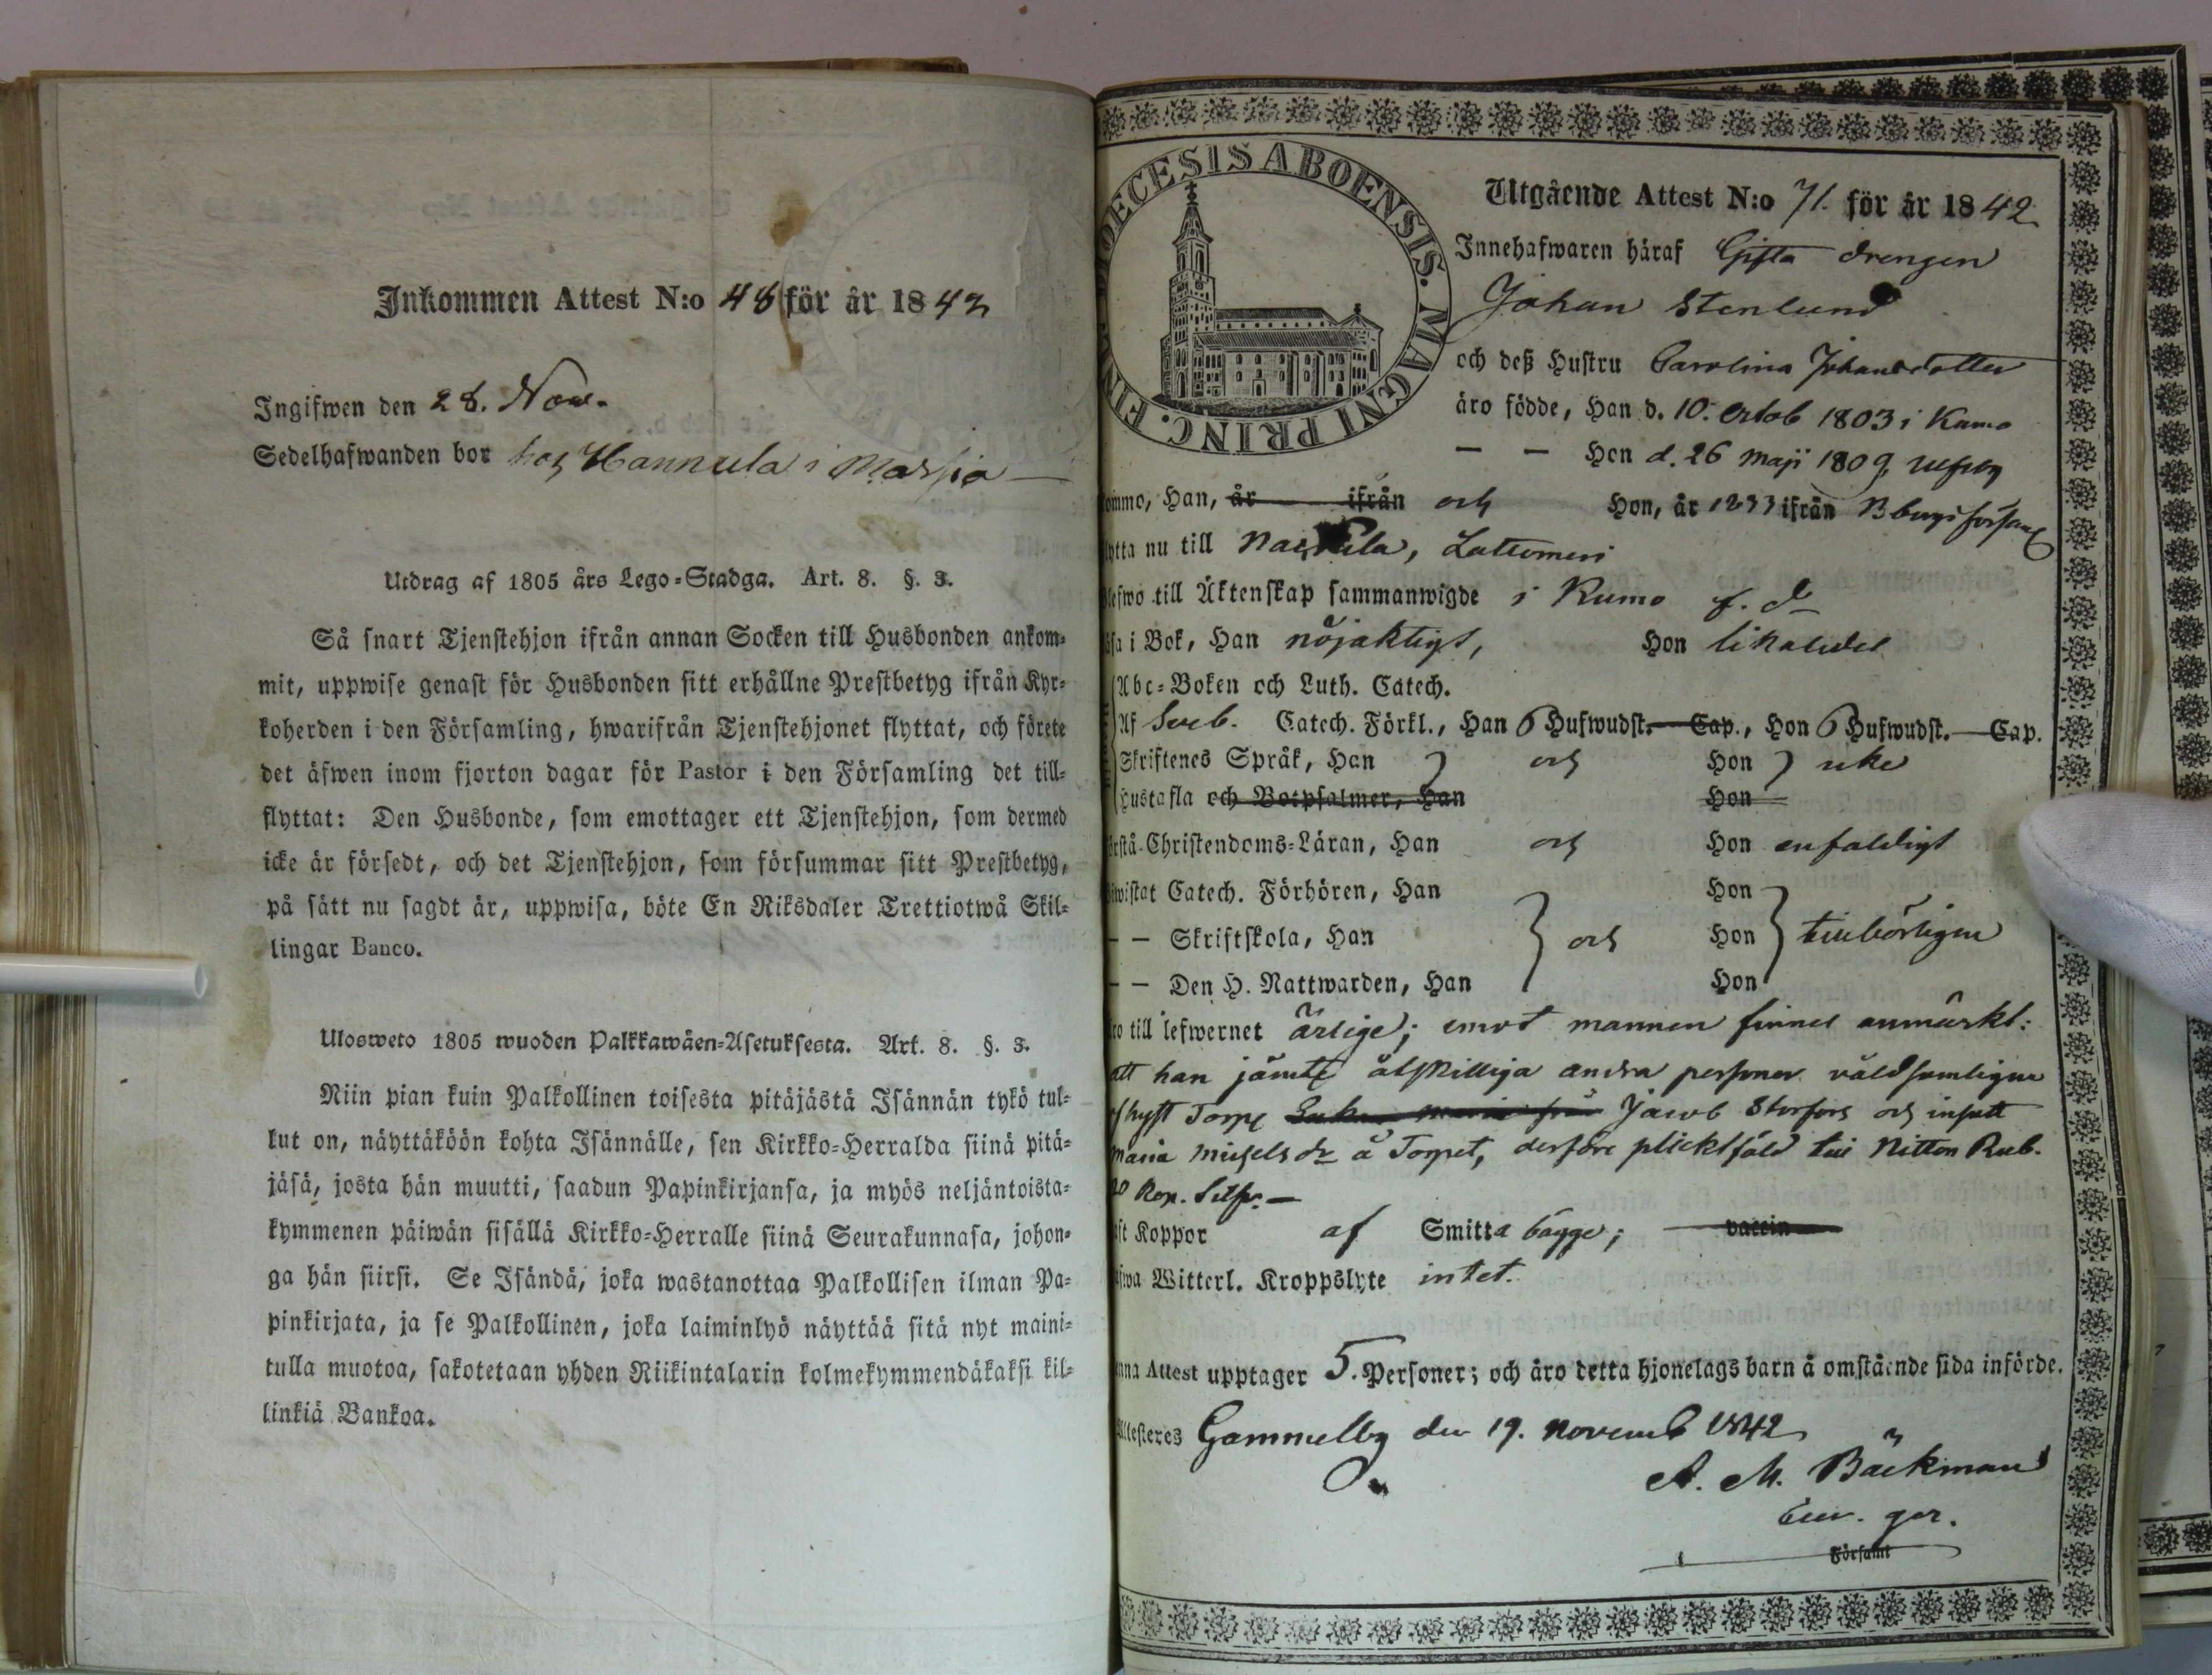 Inkommen Attest N:o 48 för år 1842
Ingifwen den 28. Nov.
Sedelhafwanden bor hos Hannula i Massia
Utdrag af 1805 års Lego-Stadga. Art. 8. §. 3.
Så snart Tjenstehjon ifrån annan Socken till Husbonden ankom-
mit, uppwise genast för Husbonden sitt erhållne Prestbetyg ifrån Kyr-
koherden i den Församling, hwarifrån Tjenstehjonet flyttat, och förete
det äfwen inom fjorton dagar för Pastor i den Församling det till-
flyttat: Den Husbonde, som emottager ett Tjenstehjon, som dermed
icke är försedt, och det Tjenstehjon, som försummar sitt Prestbetyg,
på sätt nu sagdt är, uppwisa, böte En Riksdaler Trettiotwå Skil-
lingar Banco.
Ulosweto 1805 wuoden Palkkawäen-Asetuksesta. Art. 8. §. 3.
Niin pian kuin Palkollinen toisesta pitäjästä Isännän tykö tul-
lut on, näyttäköön kohta Isännälle, sen Kirkko-Herralda siinä pitä-
jäsä, josta hän muutti, saadun Papinkirjansa, ja myös neljäntoista-
kymmenen päiwän sisällä Kirkko-Herralle siinä Seurakunnasa, johon-
ga hän siirsi. Se Isändä, joka wastanottaa Palkollisen ilman Pa-
pinkirjata, ja se Palkollinen, joka laiminlyö näyttää sitä nyt maini-
tulla muotoa, sakotetaan yhden Riikintalarin kolmekymmendäkaksi kil-
linkiä Bankoa.
OECESIS ABOENSIS. MAGNI PRINC. FIN
Utgående Attest N:o 71. för år 1842
Innehafwaren häraf Gifta drengen
Johan Stenlund
och deß Hustru Carolina Johansdotter
äro födde, Han d. 10. Octob 1803 i Kumo
— — Hon d. 26 Maji 1809, Ulfsby
ommo, Han, år ifrån och Hon, år 1833 ifrån
lytta nu till Lattomeri
lefwo till Äktenskap sammanwigde i Kumo f. d
äsa i Bok, Han nöjaktigt, Hon likaledes
Abc-Boken och Luth. Catech.
Af Sveb. Catech. Förkl., Han 6 Hufwudst. Cap., Hon 6 Hufwudst. Cap.
Skriftenes Språk, Han och Hon icke
Hustafla och Botpsalmer, Han Hon
örstå Christendoms-Läran, Han och Hon enfaldigt
iwistat Catech. Förhören, Han Hon
— — Skriftskola, Han och Hon tillbörligen
— — Den H. Nattwarden, Han Hon
ro till lefwernet ärlige; emot mannen finnes anmärkt:
att han jämte åtskilliga andra personer våldsamligen
Torp Jacob Storfors och insatt
Maria Michelsdr å Torpet, derföre pliktfäld till Nitton Rub.
Kop. Silfr. —
st Koppor af Smitta bägge; vaccin
fwa Witterl. Kroppslyte intet.
nna Attest upptager 5. Personer; och äro detta hjonelags barn å omstående sida införde.
Attesteres Gammelby den 19. Novemb 1842
A. M. Bäckman
Församl